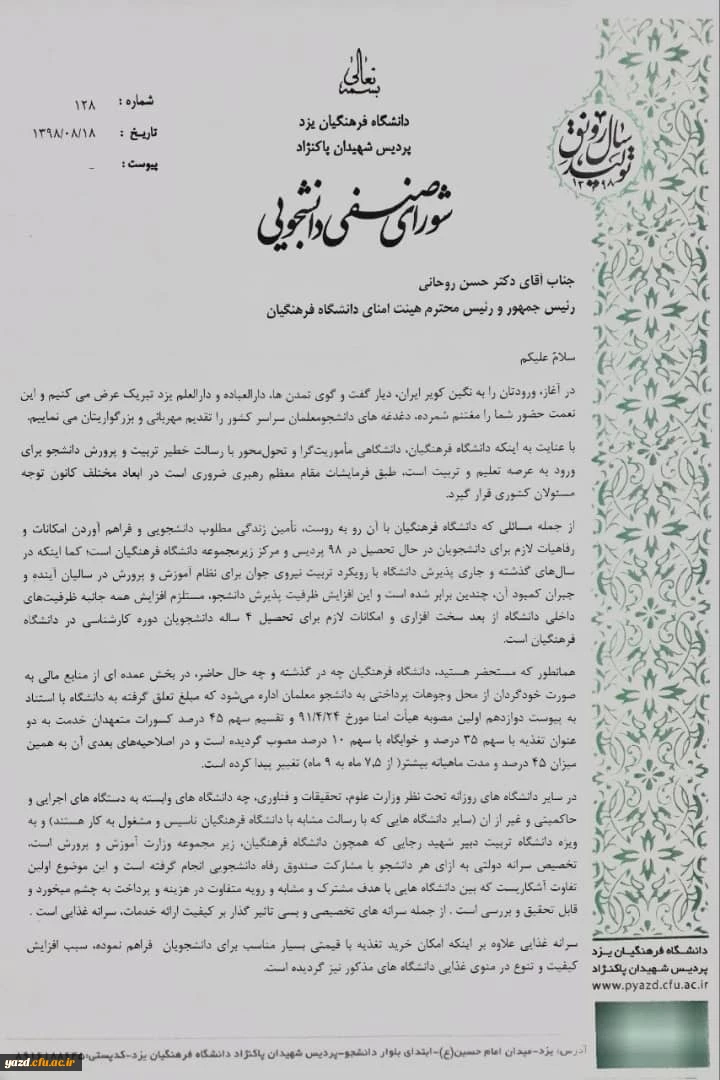 بسمه تعالی
دانشگاه فرهنگیان یزد
پردیس شهیدان پاکنژاد
شورای صنفی دانشجویی
شماره : ۱۲۸
تاریخ : ۱۳۹۸/۰۸/۱۸
پیوست : -
سال رونق تولید
۱۳۹۸
جناب آقای دکتر حسن روحانی
رئیس جمهور و رئیس محترم هیئت امنای دانشگاه فرهنگیان
سلامٌ علیکم
در آغاز، ورودتان را به نگین کویر ایران، دیار گفت و گوی تمدن ها، دارالعباده و دارالعلم یزد تبریک عرض می کنیم و این
نعمت حضور شما را مغتنم شمرده، دغدغه های دانشجومعلمان سراسر کشور را تقدیم مهربانی و بزرگواریتان می نماییم.
با عنایت به اینکه دانشگاه فرهنگیان، دانشگاهی مأموریت‌گرا و تحول‌محور با رسالت خطیر تربیت و پرورش دانشجو برای
ورود به عرصه تعلیم و تربیت است، طبق فرمایشات مقام معظم رهبری ضروری است در ابعاد مختلف کانون توجه
مسئولان کشوری قرار گیرد.
از جمله مسائلی که دانشگاه فرهنگیان با آن رو به روست، تأمین زندگی مطلوب دانشجویی و فراهم آوردن امکانات و
رفاهیات لازم برای دانشجویان در حال تحصیل در ۹۸ پردیس و مرکز زیرمجموعه دانشگاه فرهنگیان است؛ کما اینکه در
سال‌های گذشته و جاری پذیرش دانشگاه با رویکرد تربیت نیروی جوان برای نظام آموزش و پرورش در سالیان آینده و
جبران کمبود آن، چندین برابر شده است و این افزایش ظرفیت پذیرش دانشجو، مستلزم افزایش همه جانبه ظرفیت‌های
داخلی دانشگاه از بعد سخت افزاری و امکانات لازم برای تحصیل ۴ ساله دانشجویان دوره کارشناسی در دانشگاه
فرهنگیان است.
همانطور که مستحضر هستید، دانشگاه فرهنگیان چه در گذشته و چه حال حاضر، در بخش عمده ای از منابع مالی به
صورت خودگردان از محل وجوهات پرداختی به دانشجو معلمان اداره می‌شود که مبلغ تعلق گرفته به دانشگاه با استناد
به پیوست دوازدهم اولین مصوبه هیأت امنا مورخ ۹۱/۴/۲۴ و تقسیم سهم ۴۵ درصد کسورات متعهدان خدمت به دو
عنوان تغذیه با سهم ۳۵ درصد و خوابگاه با سهم ۱۰ درصد مصوب گردیده است و در اصلاحیه‌های بعدی آن به همین
میزان ۴۵ درصد و مدت ماهیانه بیشتر( از ۷٫۵ ماه به ۹ ماه) تغییر پیدا کرده است.
در سایر دانشگاه های روزانه تحت نظر وزارت علوم، تحقیقات و فناوری، چه دانشگاه های وابسته به دستگاه های اجرایی و
حاکمیتی و غیر از ان (سایر دانشگاه هایی که با رسالت مشابه با دانشگاه فرهنگیان تاسیس و مشغول به کار هستند) و به
ویژه دانشگاه تربیت دبیر شهید رجایی که همچون دانشگاه فرهنگیان، زیر مجموعه وزارت آموزش و پرورش است،
تخصیص سرانه دولتی به ازای هر دانشجو با مشارکت صندوق رفاه دانشجویی انجام گرفته است و این موضوع اولین
تفاوت آشکاریست که بین دانشگاه هایی با هدف مشترک و مشابه و رویه متفاوت در هزینه و پرداخت به چشم میخورد و
قابل تحقیق و بررسی است . از جمله سرانه های تخصیصی و بسی تاثیر گذار بر کیفیت ارائه خدمات، سرانه غذایی است .
سرانه غذایی علاوه بر اینکه امکان خرید تغذیه با قیمتی بسیار مناسب برای دانشجویان فراهم نموده، سبب افزایش
کیفیت و تنوع در منوی غذایی دانشگاه های مذکور نیز گردیده است.
دانشگاه فرهنگیان یزد
پردیس شهیدان پاکنژاد
www.pyazd.cfu.ac.ir
آدرس: یزد-میدان امام حسین(ع)-ابتدای بلوار دانشجو-پردیس شهیدان پاکنژاد دانشگاه فرهنگیان یزد-کدپستی:
yazd.cfu.ac.ir